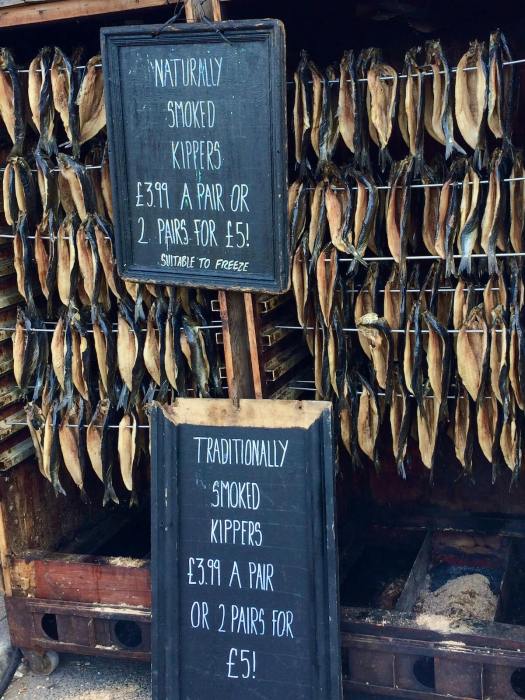 NATURALLY
SMOKED
KIPPERS
£3.99 A PAIR OR
2 PAIRS FOR £5!
SUITABLE TO FREEZE
TRADITIONALLY
SMOKED
KIPPERS
£3.99 A PAIR
OR 2 PAIRS FOR
£5!